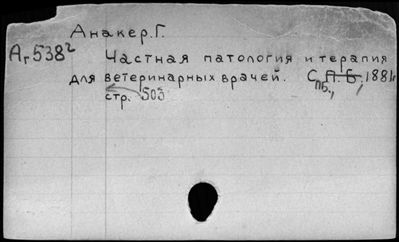 Анакер. Г.
Аг 538²
Частная патология и терапия
для ветеринарных врачей. С.пб., 1881.
стр. 503